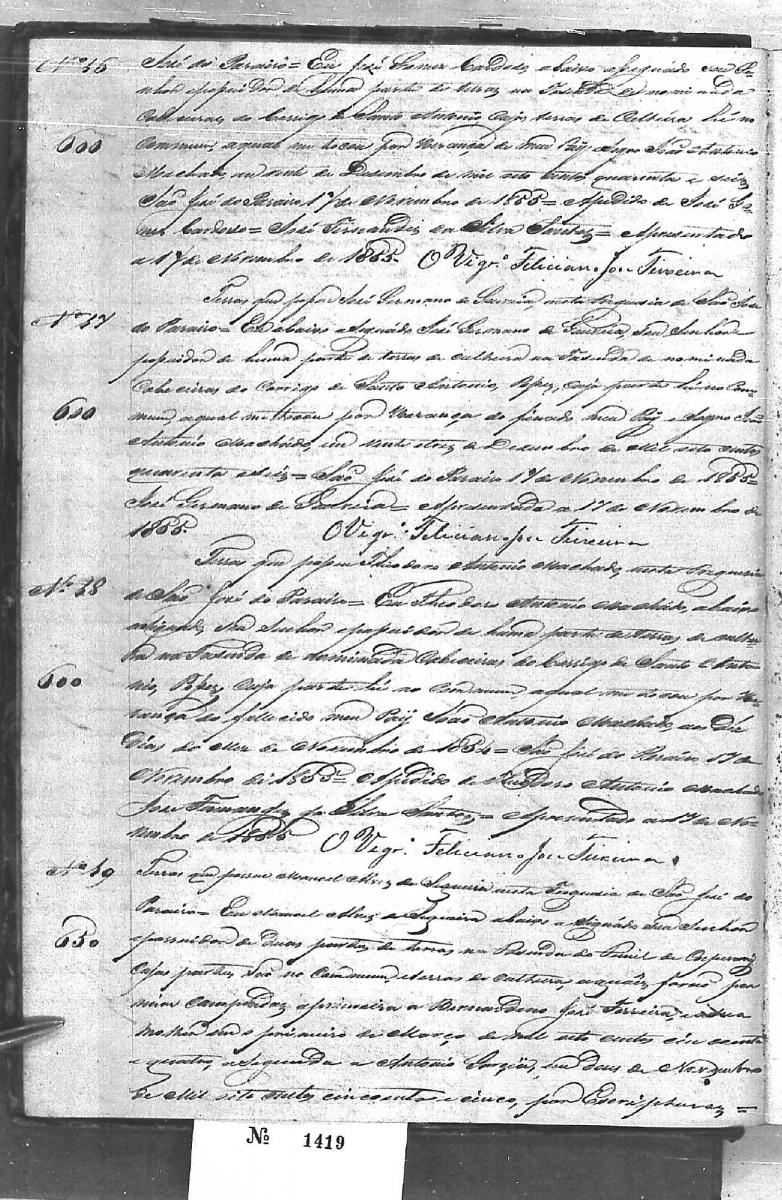 Nº 36 José do Paraizo = Eu José Gomes Cardozo, abaixo assignado sou Se-
nhor e possuidor de huma parte de terras na Fazenda de nominada
Cabeceiras do Corrigo de Santo Antonio, Cujas terras de Cultura hé no
600 Commum, aqual me tocou por Herança de meu Pay e Sogro João Antonio
Machado, em de Dezembro de mil oito centos quarenta e seis,
São José do Paraizo 17 de Novembro de 1855 = Apedido de José Go-
mes Cardozo = José Fernandes da Silva Santos = Apresentado
a 17 de Novembro de 1855. O Vigrº Feliciano Joze Teixeira
Terras que possue José Germano de nesta Freguezia de São José
Nº 37 do Paraizo = Eu abaixo assignado José Germano de Sou Senhor e
possuidor de huma parte de terras de cultura na Fazenda de nominada
Cabeceiras do Corrigo de Santo Antonio, cuja parte hé no Com-
600 mum, aqual me tocou por Herança do finado meu Pay e Sogro João
Antonio Machado, em vinte de Dezembro de Mil oito centos
quarenta e seis = São José do Paraizo 17 de Novembro de 1855 =
José Germano de = Apresentada a 17 de Novembro de
1855. O Vigrº Feliciano Joze Teixeira
Terras que possue Theodoro Antonio Machado, nesta Freguezia
Nº 38 de São José do Paraizo = Eu Theodoro Antonio Machado, abaixo
assignado, Sou Senhor e possuidor de huma parte de terras de cultu-
ra na Fazenda de nominada Cabeceiras do Corrigo de Santo Anto-
600 nio, cuja parte hé no Commum, aqual me tocou por He-
rança do fallecido meu Pay João Antonio Machado, aos Dés
Dias do Mez de Novembro de 1854 = São José do Paraizo 17 de
Novembro de 1855 = Apedido de Theodoro Antonio Machado
José Fernandes da Silva Santos = Apresentado a 17 de No-
vembro de 1855 O Vigrº Feliciano Joze Teixeira.
Nº 39 Terras que possue Manoel Alvez de Siqueira nesta Freguezia de São José do
Paraizo = Eu Manoel Alvez de Siqueira abaixo assignádo Sou Senhor
650 e possuidor de duas partes de terras na Fazenda do
Cujas partes São no Commum, e terras de cultura, aquáis forão por
mim Compradas, aprimeira a Bernardino José Ferreira, e sua
mulher em o primeiro de Março de mil oito centos cincoenta
e quatro, a segunda a Antonio em Dous de Novembro
de Mil oito centos cincoenta e cinco, por Escripturas =
Nº 1419